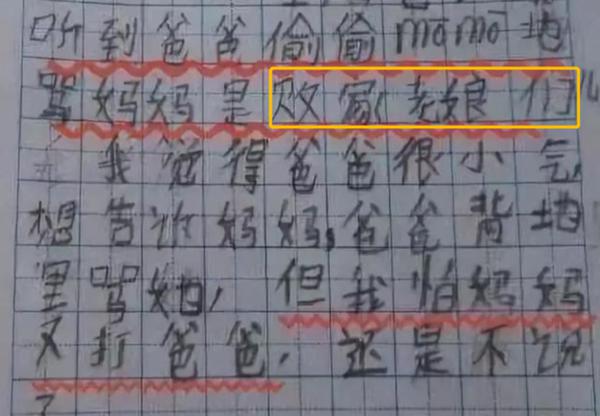 听到爸爸偷偷mōmō地
骂妈妈是败家老娘们儿
我觉得爸爸很小气,
想告诉妈妈,爸爸背地
里骂她,但我怕妈妈
又打爸爸,还是不说
了